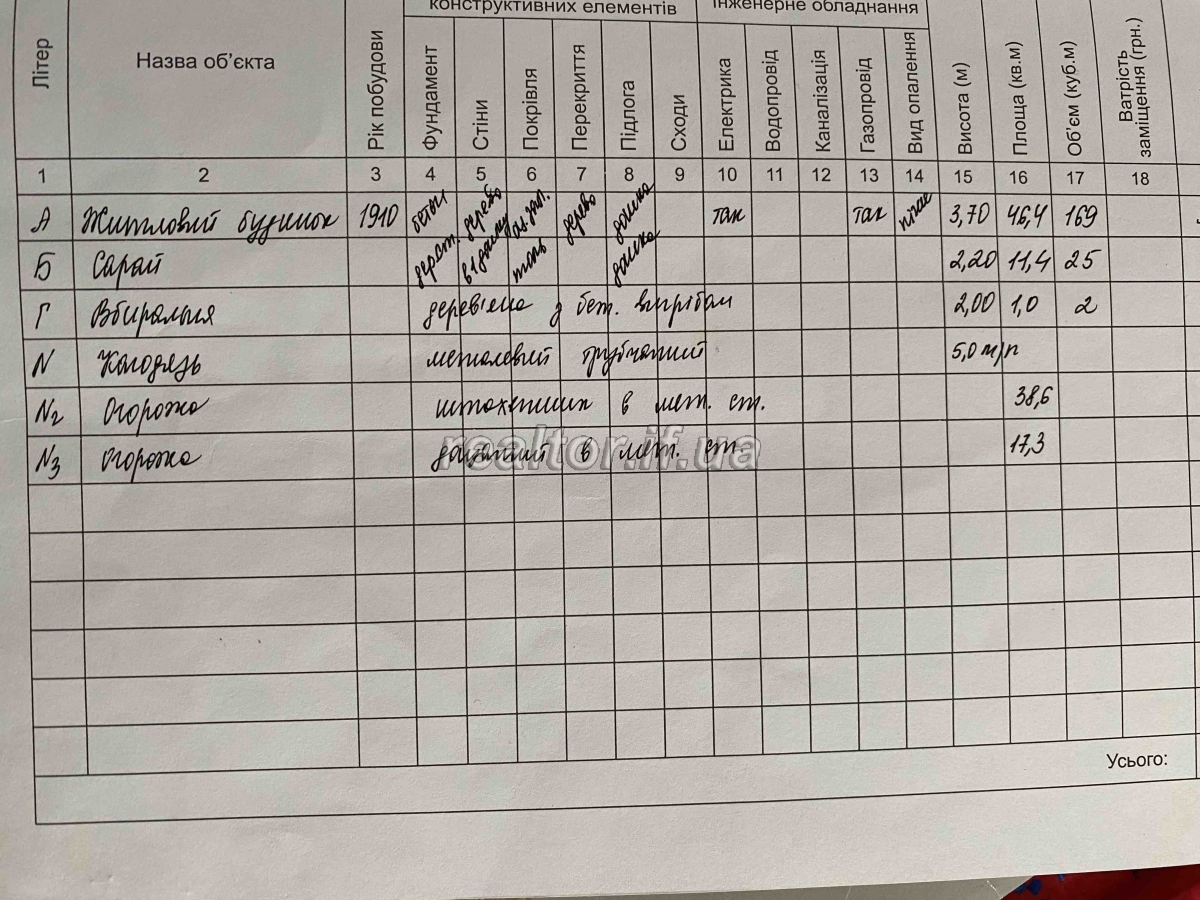 конструктивних елементів Інженерне обладнання
Літер Назва об'єкта Рік побудови Фундамент Стіни Покрівля Перекриття Підлога Сходи Електрика Водопровід Каналізація Газопровід Вид опалення Висота (м) Площа (кв.м) Об'єм (куб.м) Ватрість заміщення (грн.)
1 2 3 4 5 6 7 8 9 10 11 12 13 14 15 16 17 18
А Житловий будинок 1910 бетон дерево дерево дошка так так 3,70 46,4 169
Б Сарай дерев. в 1 дошку толь дошка 2,20 11,4 25
Г Вбиральня дерев'яна з бет. вигрібом 2,00 1,0 2
N Колодязь металевий трубчатий 5,0 м/п
N2 Огорожа штахетник в мет. ст. 38,6
N3 огорожа дощатий в мет. ст. 17,3
realtor.if.ua
Усього: